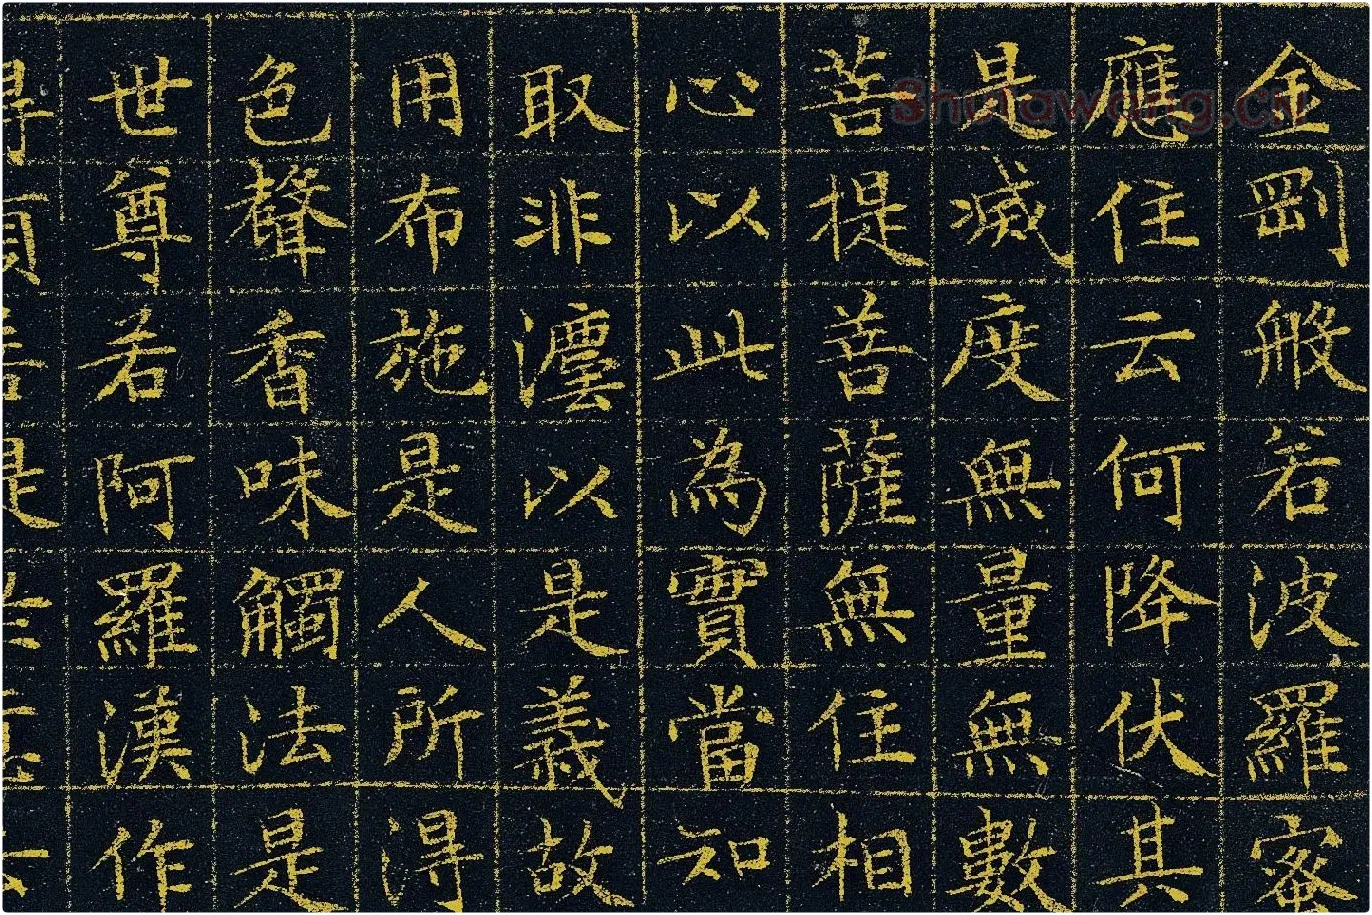 金剛般若波羅蜜
應住云何降伏其
是滅度無量無數
菩提菩薩無住相
心以此為實當知
取非灋以是義故
用布施是人所得
色聲香味觸法是
世尊若阿羅漢作
Shufawang.cn